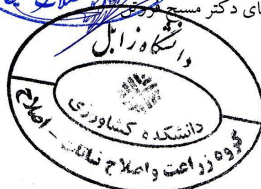 ای دکتر مسیح
دانشگاه زابل
دانشکده کشاورزی
گروه زراعت و اصلاح نباتات - اصلاح